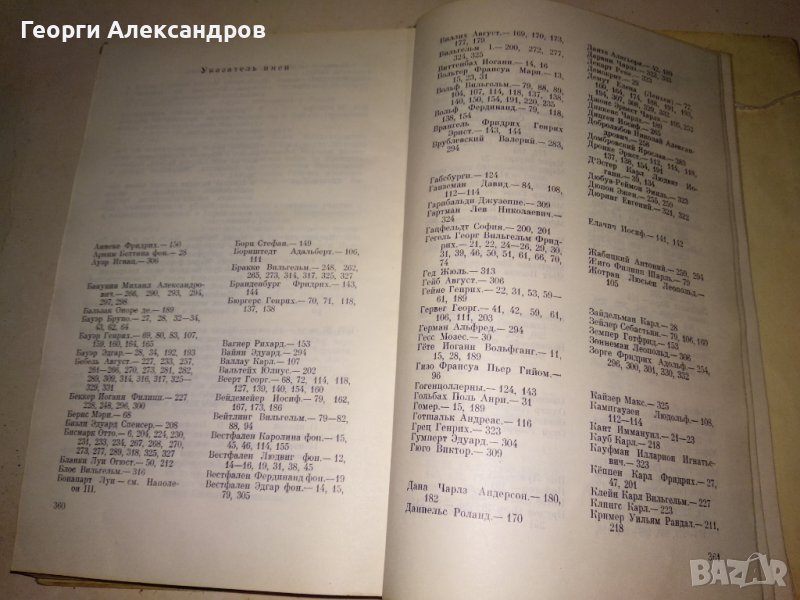 Георги Александров
Указатель имен
Аннеке Фридрих.— 150
Арним Беттина фон.— 28
Ауэр Игнац.— 306
Бакунин Михаил Александро-
вич.— 266, 290, 293, 294,
297, 298
Бальзак Оноре де.— 189
Бауэр Бруно.— 27, 28, 32—34,
43, 62, 64
Бауэр Генрих.— 69, 80, 83, 107,
159, 160, 164, 165
Бауэр Эдгар.— 28, 34, 192, 193
Бебель Август.— 227, 225, 261,
261—266, 270, 273, 281, 282,
289, 309, 314, 316, 317, 325—
329, 331
Беккер Иоганн Филипп.— 227
228, 248, 296, 300
Бернс Мэри.— 68
Бизли Эдуард Спенсер.— 208
Бисмарк Отто.— 6, 204, 224, 230,
231, 233, 234, 267, 268, 270,
273, 277, 289, 315, 316, 317
Бланки Луи Огюст.— 50, 212
Блос Вильгельм.— 316
Бонапарт Луи — см. Наполе-
он III.
360
Борн Стефан.— 149
Борнштедт Адальберт.— 106,
111
Бракке Вильгельм.— 248, 262,
265, 273, 314, 317, 325, 327
Бранденбург Фридрих.— 143,
144
Бюргерс Генрих.— 70, 71, 118,
137, 158
Вагнер Рихард.— 153
Вайян Эдуард.— 294
Валлау Карл.— 107
Вальтейх Юлиус.— 202
Веерт Георг.— 68, 72, 114, 118,
127, 139, 140, 154, 160
Вейдемейер Иосиф.— 79, 162,
167, 173, 186
Вейтлинг Вильгельм.— 79—82,
88, 94
Вестфален Каролина фон.— 15,
45, 46, 114, 155
Вестфален Людвиг фон.— 12,
14—16, 19, 31, 38, 45
Вестфален Фердинанд фон.—19
Вестфален Эдгар фон.— 14, 15,
79, 305
Виллих Август.— 169, 170, 173,
177, 179
Вильгельм I.— 200, 272, 277,
324, 325
Виттенбах Иоганн.— 14, 16
Вольтер Франсуа Мари.— 13,
15, 23, 31
Вольф Вильгельм.— 79, 88, 89,
104, 107, 114, 118, 137, 138,
140, 150, 154, 191, 220, 235
Вольф Фердинанд.— 79, 118,
138, 154
Врангель Фридрих Генрих
Эрнст.— 143, 144
Врублевский Валерий.— 283,
294
Габсбурги.— 124
Ганземан Давид.— 84, 108,
112—114
Гарибальди Джузеппе.— 309
Гартман Лев Николаевич.—
324
Гацфельдт София.— 200, 201
Гегель Георг Вильгельм Фрид-
рих.— 21, 22, 24—26, 29, 30,
41, 39, 46, 50, 51, 61, 66, 70,
74
Гед Жюль.— 313
Гейб Август.— 306
Гейне Генрих.— 22, 31, 53, 59—
61, 189
Гервег Георг.— 41, 42, 59, 61,
106, 111, 203
Герман Альфред.— 294
Гесс Мозес.— 30
Гёте Иоганн Вольфганг.— 11,
15, 28, 189
Гизо Франсуа Пьер Гийом.—
96
Гогенцоллерны.— 124, 143
Гольбах Поль Анри.— 31
Гомер.— 15, 189
Готшальк Андреас.— 116
Грец Генрих.— 323
Гумперт Эдуард.— 304
Гюго Виктор.— 309
Дана Чарлз Андерсон.— 180,
182
Даниельс Роланд.— 170
Данте Алигьери.— 42, 189
Дарвин Чарлз.—
Декарт Рене.—
Демокрит.— 29
Демут Елена (Ленхен).— 77,
Джонс Эрнест Чарлз.—
Диккенс Чарлз.—
Дицген Иосиф.— 265
Добролюбов Николай Алексан-
дрович.— 256
Домбровский Ярослав.— 283
Дронке Эрнст.— 112, 144, 118,
137, 138, 154, 194
Д'Эстер Карл Людвиг Ио-
ганн.— 39, 134
Дюбуа-Реймон Эмиль.— 323
Дюпон Эжен.— 255, 259
Дюринг Евгений.— 321, 322
Елачич Иосиф.— 141, 142
Жабицкий Антоний.— 259, 294
Жиго Филипп Шарль.— 79
Жотран Люсьен Леопольд.—
105
Зайдельман Карл.— 28
Зейлер Себастьян.— 79, 106, 160
Земпер Готфрид.— 153
Зоннеман Леопольд.—
Зорге Фридрих Адольф.— 254,
296, 300, 301, 330, 332
Кайзер Макс.— 325
Кампгаузен Людольф.— 108,
112—114
Кант Иммануил.— 21—23
Кауб Карл.— 223
Кауфман Илларион Игнатье-
вич.— 323
Кёппен Карл Фридрих.— 27,
47, 201
Клейн Карл Вильгельм.— 227
Клингс Карл.— 223
Кример Уильям Рандал.— 211,
218
361
BAZAR